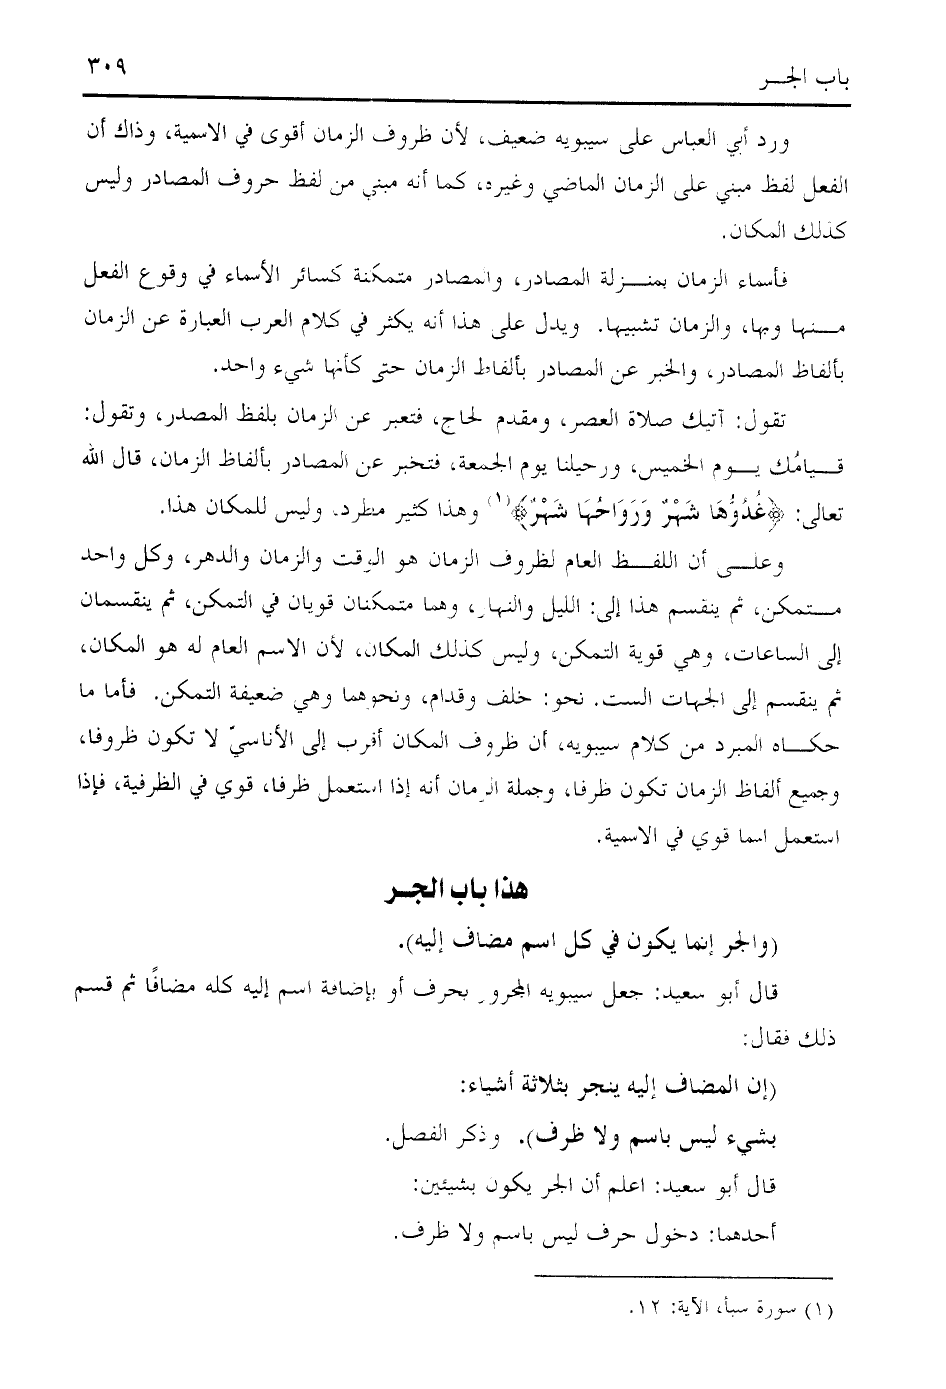 باب الجـــر
٣٠٩
ورد أبي العباس على سيبويه ضعيف، لأن ظروف الزمان أقوى في الاسمية، وذاك أن
الفعل لفظ مبني على الزمان الماضي وغيره، كما أنه مبني من لفظ حروف المصادر وليس
كذلك المكان.
فأسماء الزمان بمنـــزلة المصادر، والمصادر متمكنة كسائر الأسماء في وقوع الفعل
مـــنها وبها، والزمان تشبيها. ويدل على هذا أنه يكثر في كلام العرب العبارة عن الزمان
بألفاظ المصادر، والخبر عن المصادر بألفاظ الزمان حتى كأنها شيء واحد.
تقول: آتيك صلاة العصر، ومقدم لحاج، فتعبر عن الزمان بلفظ المصدر، وتقول:
قـــيامُك يـــوم الخميس، ورحيلنا يوم الجمعة، فتخبر عن المصادر بألفاظ الزمان، قال الله
تعالى: ﴿غُدُوُّهَا شَهْرٌ وَرَوَاحُهَا شَهْرٌ﴾(١) وهذا كثير مطرد. وليس للمكان هذا.
وعلـــى أن اللفـــظ العام لظروف الزمان هو الوقت والزمان والدهر، وكل واحد
مـــتمكن، ثم ينقسم هذا إلى: الليل والنهار، وهما متمكنان قويان في التمكن، ثم ينقسمان
إلى الساعات، وهي قوية التمكن، وليس كذلك المكان، لأن الاسم العام له هو المكان،
ثم ينقسم إلى الجهات الست. نحو: خلف وقدام، ونحوهما وهي ضعيفة التمكن. فأما ما
حكـــاه المبرد من كلام سيبويه، أن ظروف المكان أقرب إلى الأناسيّ لا تكون ظروفا،
وجميع ألفاظ الزمان تكون ظرفا، وجملة الزمان أنه إذا استعمل ظرفا، قوي في الظرفية، فإذا
استعمل اسما قوي في الاسمية.
هذا باب الجـــر
(والجر إنما يكون في كل اسم مضاف إليه).
قال أبو سعيد: جعل سيبويه المجرور بحرف أو بإضافة اسم إليه كله مضافًا ثم قسم
ذلك فقال:
(إن المضاف إليه ينجر بثلاثة أشياء:
بشيء ليس باسم ولا ظرف). وذكر الفصل.
قال أبو سعيد: اعلم أن الجر يكون بشيئين:
أحدهما: دخول حرف ليس باسم ولا ظرف.
(١) سورة سبأ، الآية: ١٢.